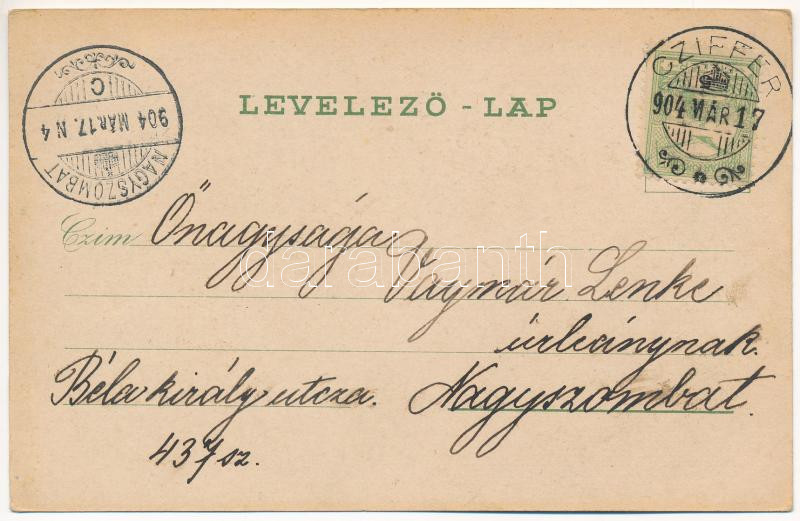 CZIFFER
904 MÁR 17
NAGYSZOMBAT
904 MÁR 17. N 4
C
LEVELEZŐ - LAP
Czim Őnagysága
Vaymár Lenke
úrleánynak.
Béla király utcza. Nagyszombat.
437 sz.
darabanth